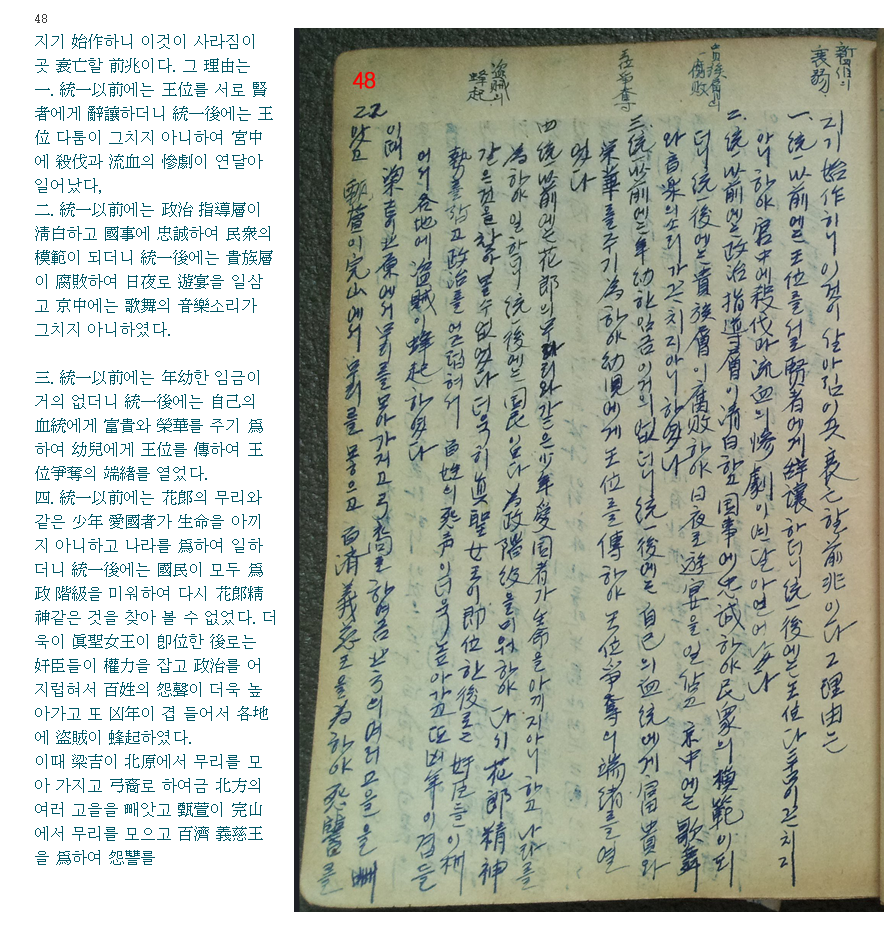 48
지기 始作하니 이것이 사라짐이
곳 衰亡할 前兆이다. 그 理由는
一. 統一以前에는 王位를 서로 賢
者에게 辭讓하더니 統一後에는 王
位 다툼이 그치지 아니하여 宮中
에 殺伐과 流血의 慘劇이 연달아
일어났다,
二. 統一以前에는 政治 指導層이
淸白하고 國事에 忠誠하여 民衆의
模範이 되더니 統一後에는 貴族層
이 腐敗하여 日夜로 遊宴을 일삼
고 京中에는 歌舞의 音樂소리가
그치지 아니하였다.
三. 統一以前에는 年幼한 임금이
거의 없더니 統一後에는 自己의
血統에게 富貴와 榮華를 주기 爲
하여 幼兒에게 王位를 傳하여 王
位爭奪의 端緖를 열었다.
四. 統一以前에는 花郎의 무리와
같은 少年 愛國者가 生命을 아끼
지 아니하고 나라를 爲하여 일하
더니 統一後에는 國民이 모두 爲
政 階級을 미워하여 다시 花郎精
神같은 것을 찾아 볼 수 없었다. 더
욱이 眞聖女王이 卽位한 後로는
奸臣들이 權力을 잡고 政治를 어
지럽혀서 百姓의 怨聲이 더욱 높
아가고 또 凶年이 겹 들어서 各地
에 盜賊이 蜂起하였다.
이때 梁吉이 北原에서 무리를 모
아 가지고 弓裔로 하여금 北方의
여러 고을을 빼앗고 甄萱이 完山
에서 무리를 모으고 百濟 義慈王
을 爲하여 怨讐를
48
22
衰弱
貴族層의
腐敗
盜賊의
蜂起
지기 始作하니 이것이 살아짐이 곳 衰亡할 前兆이다 그 理由는
一. 統一以前에는 王位를 서로 賢者에게 辭讓하더니 統一後에는 王位 다툼이 끈치지
아니하야 宮中에 殺伐과 流血의 慘劇이 연달아 연어났다
二. 統一以前에는 政治指導層이 淸白하고 国事에 忠誠하야 民衆의 模範이 되
더니 統一後에는 貴族層이 腐敗하야 日夜로 遊宴을 일삼고 京中에는 歌舞
와 音樂의 소리가 끈치지 아니하엿다
三. 統一以前에는 年幼한 임금이 거의 업더니 統一後에는 自己의 血統에게 富貴와
榮華를 주기 爲하야 幼児에게 王位를 傳하야 王位爭奪의 端緖를 열
엇다
四 統一以前에는 花郎의 무리와 같은 少年愛国者가 生命을 아끼지 아니하고 나라를
為하야 일하더니 統一後에는 国民이 모다 為政階級을 미워하야 다시 花郎精神
같은 것을 찾아 볼 수 없엇다 더욱히 眞聖女王이 即位한 後로는 奸臣들이 權
勢를 잡고 政治를 어즈럽혀서 百姓의 怨声이 더욱 높아가고 또 凶年이 겹들
어서 各地에 盜賊이 蜂起하엿다
이때 梁吉이 北原에서 무리를 모아 가지고 弓裔로 하여금 北方의 여러 고을을 빼
앗고 甄萱이 完山에서 무리를 몽으고 百濟 義慈王을 為하야 怨讐를